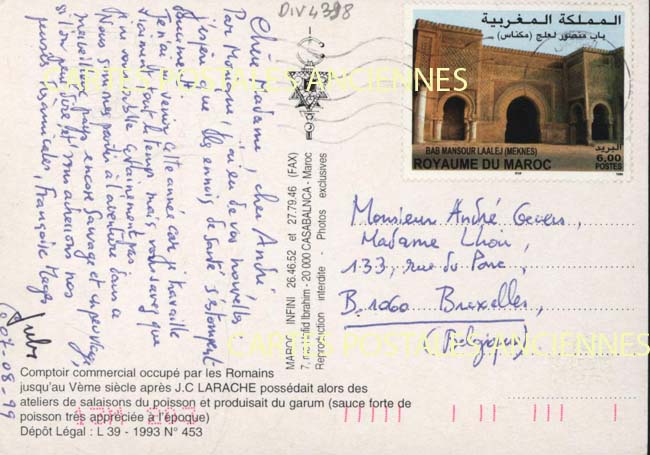 DIV4398
المملكة المغربية
باب منصور لعلج (مكناس)
BAB MANSOUR LAALEJ (MEKNES)
ROYAUME DU MAROC
البريد
6,00
POSTES
CARTES POSTALES ANCIENNES
CARTES POSTALES ANCIENNES
Chère Madame, cher André
Par Mo j'ai eu de vos nouvelles
j'espère que les ennuis de santé s'estompent
venir cette année car je travaille
vraiment tout le temps mais vous savez que
je n'oublie certainement pas
Nous sommes partis à l'aventure dans ce
merveilleux pays encore sauvage
si l'on peut dire et nous adressons nos
pensées amicales, Françoise
Jules
07-08-99
MAROC INFINI 26.46.52 et 27.79.46 (FAX)
7, rue Ibrahim - 20 000 CASABALNCA - Maroc
Reproduction interdite - Photos exclusives
Monsieur André Gevers,
Madame
133, rue du Parc,
B. 1060 Bruxelles,
(Belgique)
Comptoir commercial occupé par les Romains
jusqu'au Vème siècle après J.C LARACHE possédait alors des
ateliers de salaisons du poisson et produisait du garum (sauce forte de
poisson très appréciée à l'époque)
Dépôt Légal : L 39 - 1993 N° 453